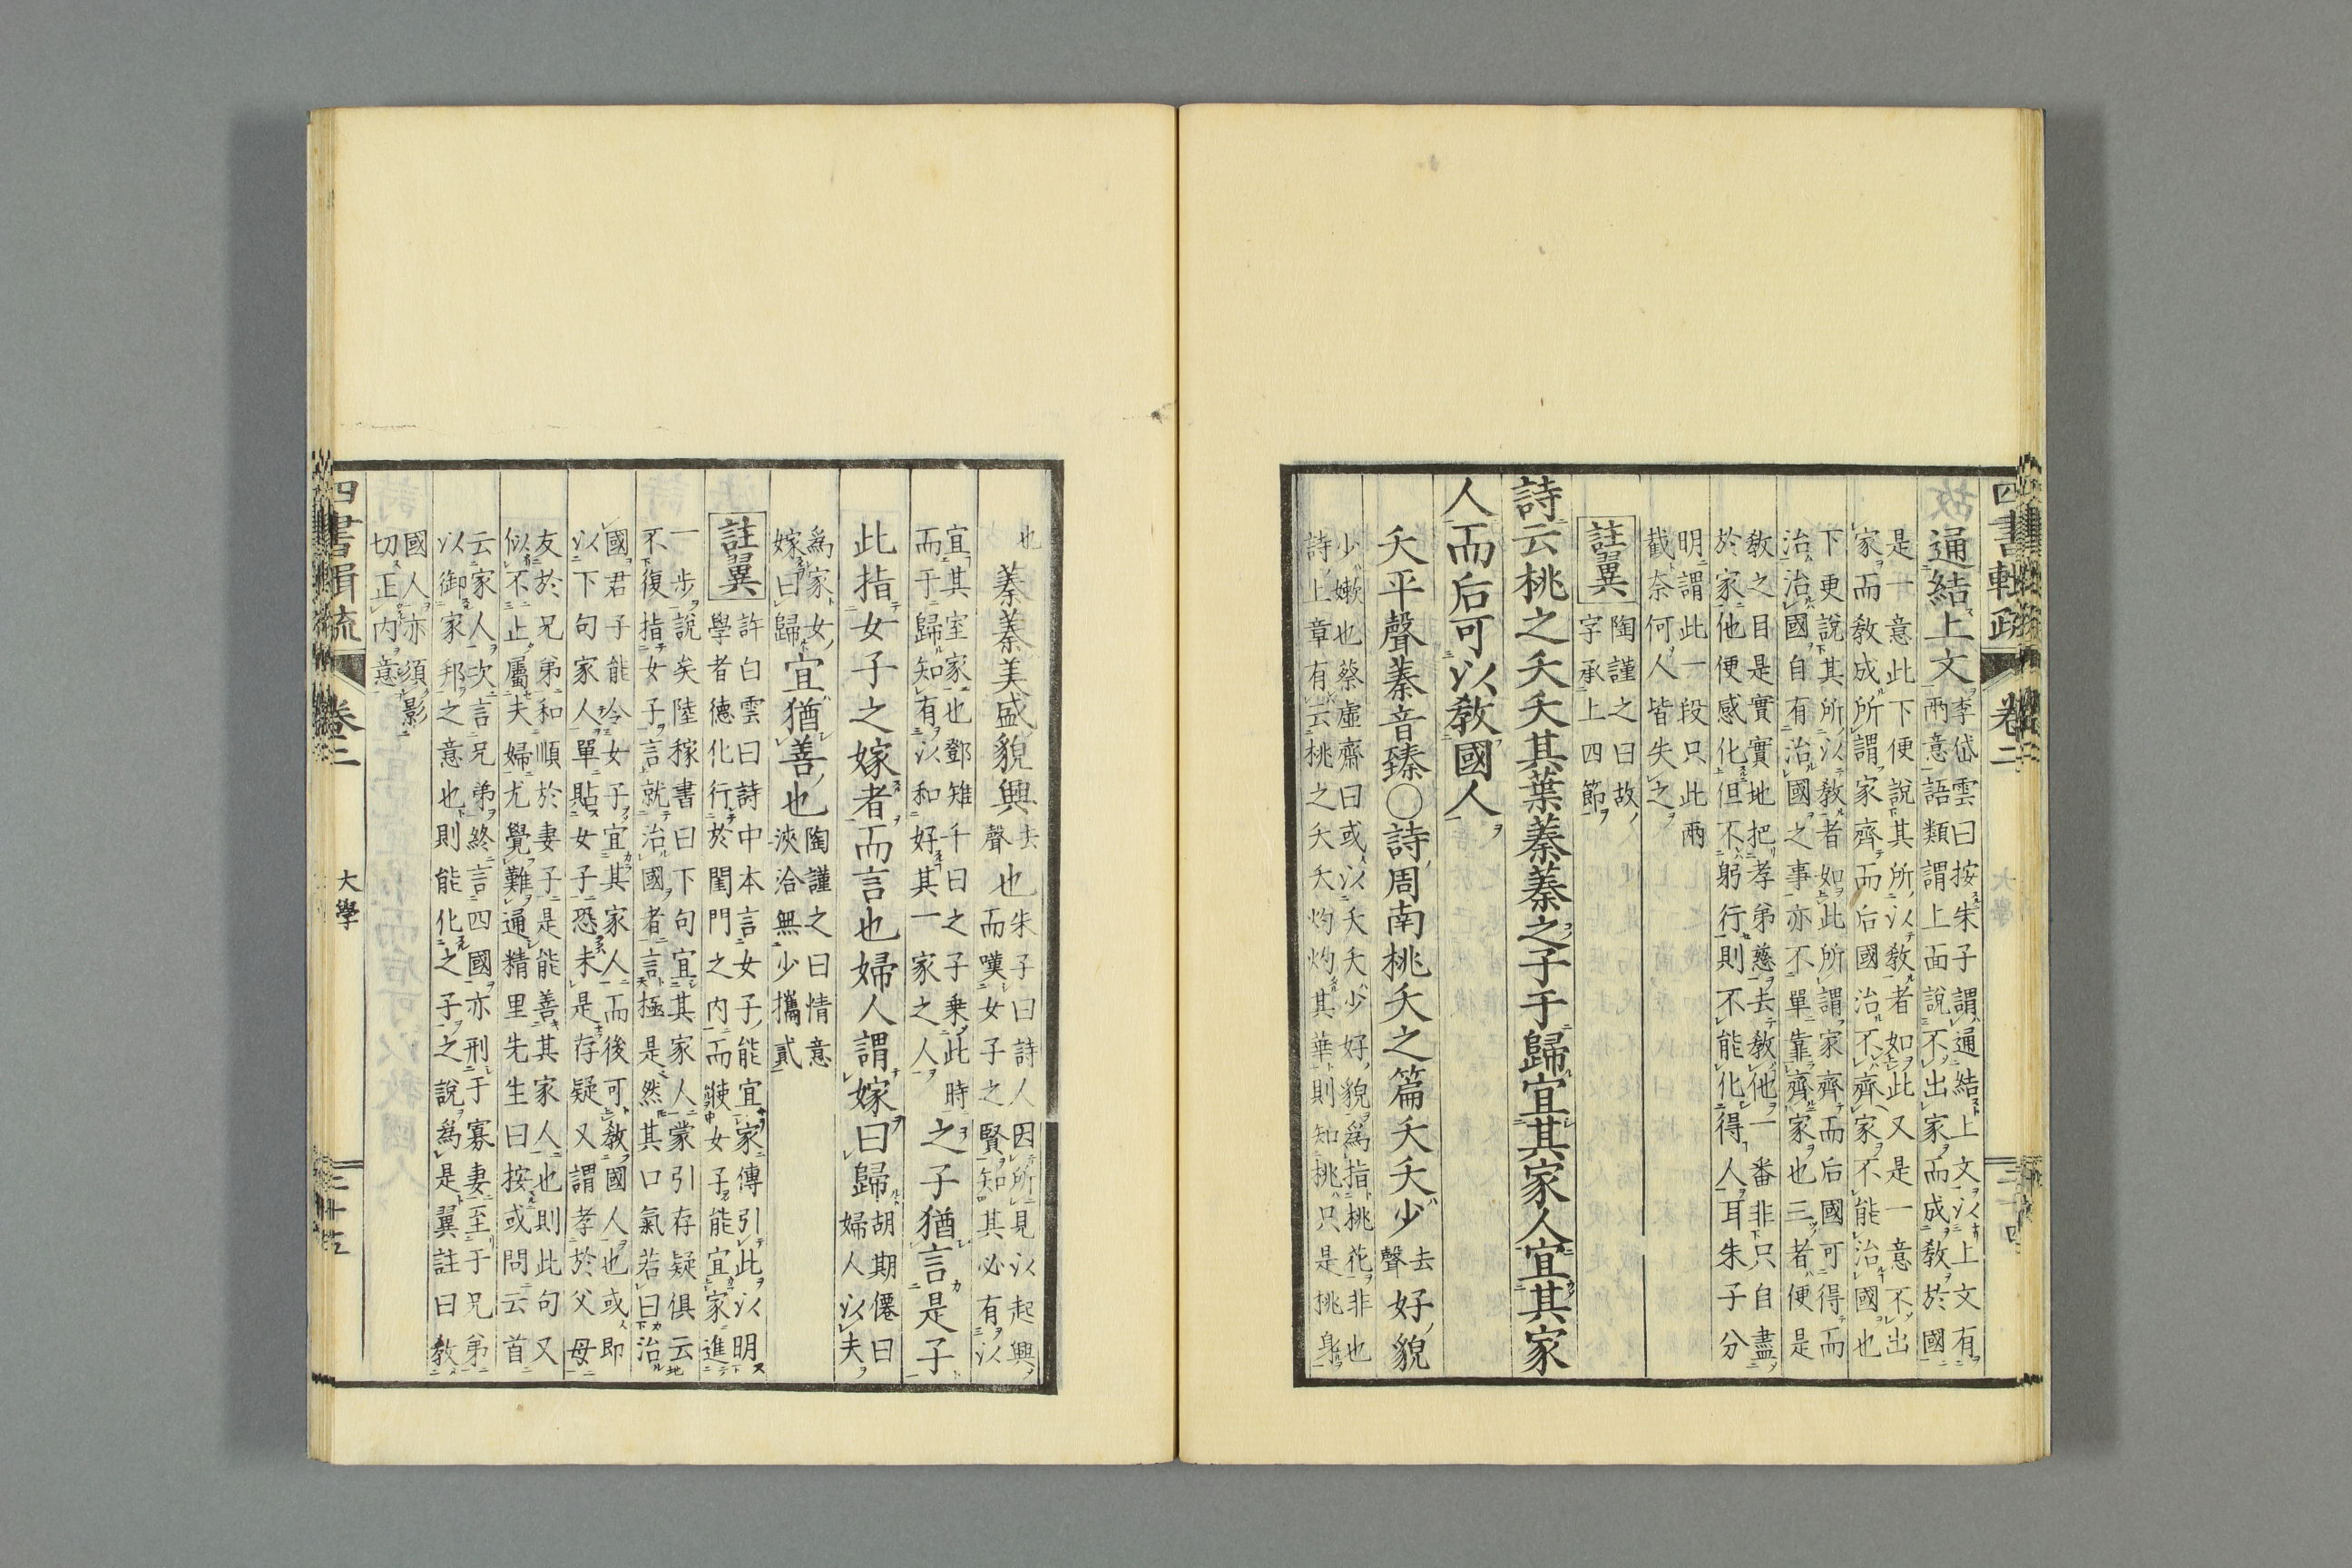 四書輯疏
卷二
通結上文李岱雲曰按朱子謂通結上文以上文有
兩意語類謂上面說不出家而成教於國
是一意此下便說其所以教者如此又是一意不出
家而教成所謂家齊而后國治不齊家不能治國也
下更說其所以教者如此所謂家齊而后國可得而
治治國自有治國之事亦不單靠齊家也三者便是
教之目是實實地把孝弟慈去教他一番非只自盡
於家他便感化但不躬行則不能化得人耳朱子分
明謂此一段只此兩
截奈何人皆失之
註翼陶謹之曰故
字承上四節
詩云桃之夭夭其葉蓁蓁之子于歸宜其家人宜其家
人而后可以教國人
夭平聲蓁音臻○詩周南桃夭之篇夭夭少去聲好貌
少嫩也蔡虛齋曰或以夭夭少好貌為指桃花非也
詩上章有云桃之夭夭灼灼其華則知桃只是桃身
也
蓁蓁美盛貌興去聲也朱子曰詩人因所見以起興
而嘆女子之賢知其必有以
宜其室家也鄧雉千曰之子乗此時
而于歸知有以和好其一家之人之子猶言是子
此指女子之嫁者而言也婦人謂嫁曰歸胡期僊曰
婦人以夫
為家女
嫁曰歸宜猶善也陶謹之曰情意
浹洽無少攜貳
註翼許白雲曰詩中本言女子能宜家傳引此以明
學者德化行於閨門之內而使女子能宜家進
一步說矣陸稼書曰下句宜其家人蒙引存疑俱云
不復指女子言就治國者言極是然其口氣若曰治
國君子能令女子宜其家人而後可教國人也或即
以下句家人單貼女子恐未是存疑又謂孝於父母
友於兄弟和順於妻子是能善其家人也則此句又
似不止屬夫婦尤覺難通精里先生曰按或問云首
云家人次言兄弟終言四國亦刑于寡妻至于兄弟
以御家邦之意也則能化之子之說為是翼註曰教
國人亦須影
切正內意
四書輯疏
卷二
大學